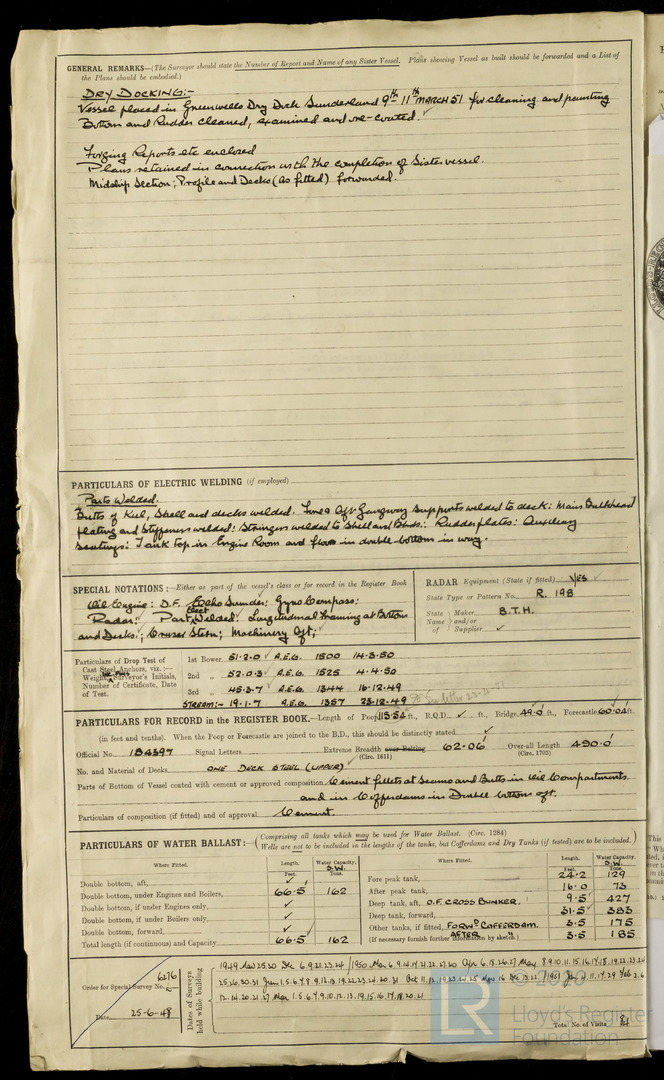 GENERAL REMARKS—(The Surveyor should state the Number of Report and Name of any Sister Vessel. Plans showing Vessel as built should be forwarded and a List of
the Plans should be embodied.)
DRY DOCKING:-
Vessel placed in Greenwells Dry Dock Sunderland 9th 11th MARCH 51 for cleaning and painting
Bottom and Rudder cleaned, examined and re-coated.
Forging Reports etc enclosed
Plans retained in connection with the completion of Sister vessel.
Midship Section; Profile and Decks (as fitted) forwarded.
PARTICULARS OF ELECTRIC WELDING (if employed)
Parts Welded.
Butts of Keel, Shell and decks welded. Fore & Aft Gangway supports welded to deck: Main Bulkhead
plating and Stiffeners welded: Stringers welded to Shell and Bhds: Rudder plates: Auxiliary
Seatings: Tank top in Engine Room and floors in double bottom in way.
SPECIAL NOTATIONS:—Either as part of the vessel's class or for record in the Register Book
Oil Engine: D.F. Echo Sounder; Gyro Compass;
Radar: Part Elect Welded: Longitudinal framing at Bottom
and Decks; Cruiser Stern; Machinery Aft;
RADAR Equipment (State if fitted) YES
State Type or Pattern No. R. 198
State Name and/or of Maker B.T.H.
Supplier
Particulars of Drop Test of
Cast Steel Anchors, viz.:—
Weight, Surveyor's Initials,
Number of Certificate, Date
of Test.
1st Bower 51·2·0 A.E.G. 1500 14-3-50
2nd „ 52·0·3 A.E.G. 1525 4-4-50
3rd „ 45·3·7 A.E.G. 1344 16-12-49
STREAM:- 19·1·7 A.E.G. 1357 23-12-49
PARTICULARS FOR RECORD in the REGISTER BOOK.—Length of Poop 113·54 ft., R.Q.D. ft., Bridge 49·0 ft., Forecastle 60·04 ft.
(in feet and tenths). When the Poop or Forecastle are joined to the B.D., this should be distinctly stated
Official No. 184397 Signal Letters Extreme Breadth over Belting (Circ. 1611) 62·06' Over-all Length (Circ. 1703) 490·0'
No. and Material of Decks ONE DECK STEEL (UPPER)
Parts of Bottom of Vessel coated with cement or approved composition Cement fillets at Seams and Butts in Oil Compartments.
and in Cofferdams in Double bottom aft.
Particulars of composition (if fitted) and of approval Cement.
PARTICULARS OF WATER BALLAST:—(Comprising all tanks which may be used for Water Ballast. (Circ. 1284)
Wells are not to be included in the lengths of the tanks, but Cofferdams and Dry Tanks (if tested) are to be included.)
Where Fitted. Length. Feet. Water Capacity. S.W. Tons. Where Fitted. Length. Feet. Water Capacity. S.W. Tons.
Double bottom, aft, Fore peak tank, 24·2 129
Double bottom, under Engines and Boilers, 66·5 162 After peak tank, 16·0 73
Double bottom, if under Engines only, Deep tank, aft, O.F. CROSS BUNKER. 9·5 427
Double bottom, if under Boilers only, Deep tank, forward, 31·5 383
Double bottom, forward, Other tanks, if fitted, FORWD COFFERDAM. 3·5 175
Total length (if continuous) and Capacity 66·5 162 (If necessary furnish further information by sketch.) AFTER „ 3·5 185
Order for Special Survey No. 6276
Date 25-6-48
Dates of Surveys held while building
Total No. of Visits 84
© 2020
LR
Lloyd's Register
Foundation